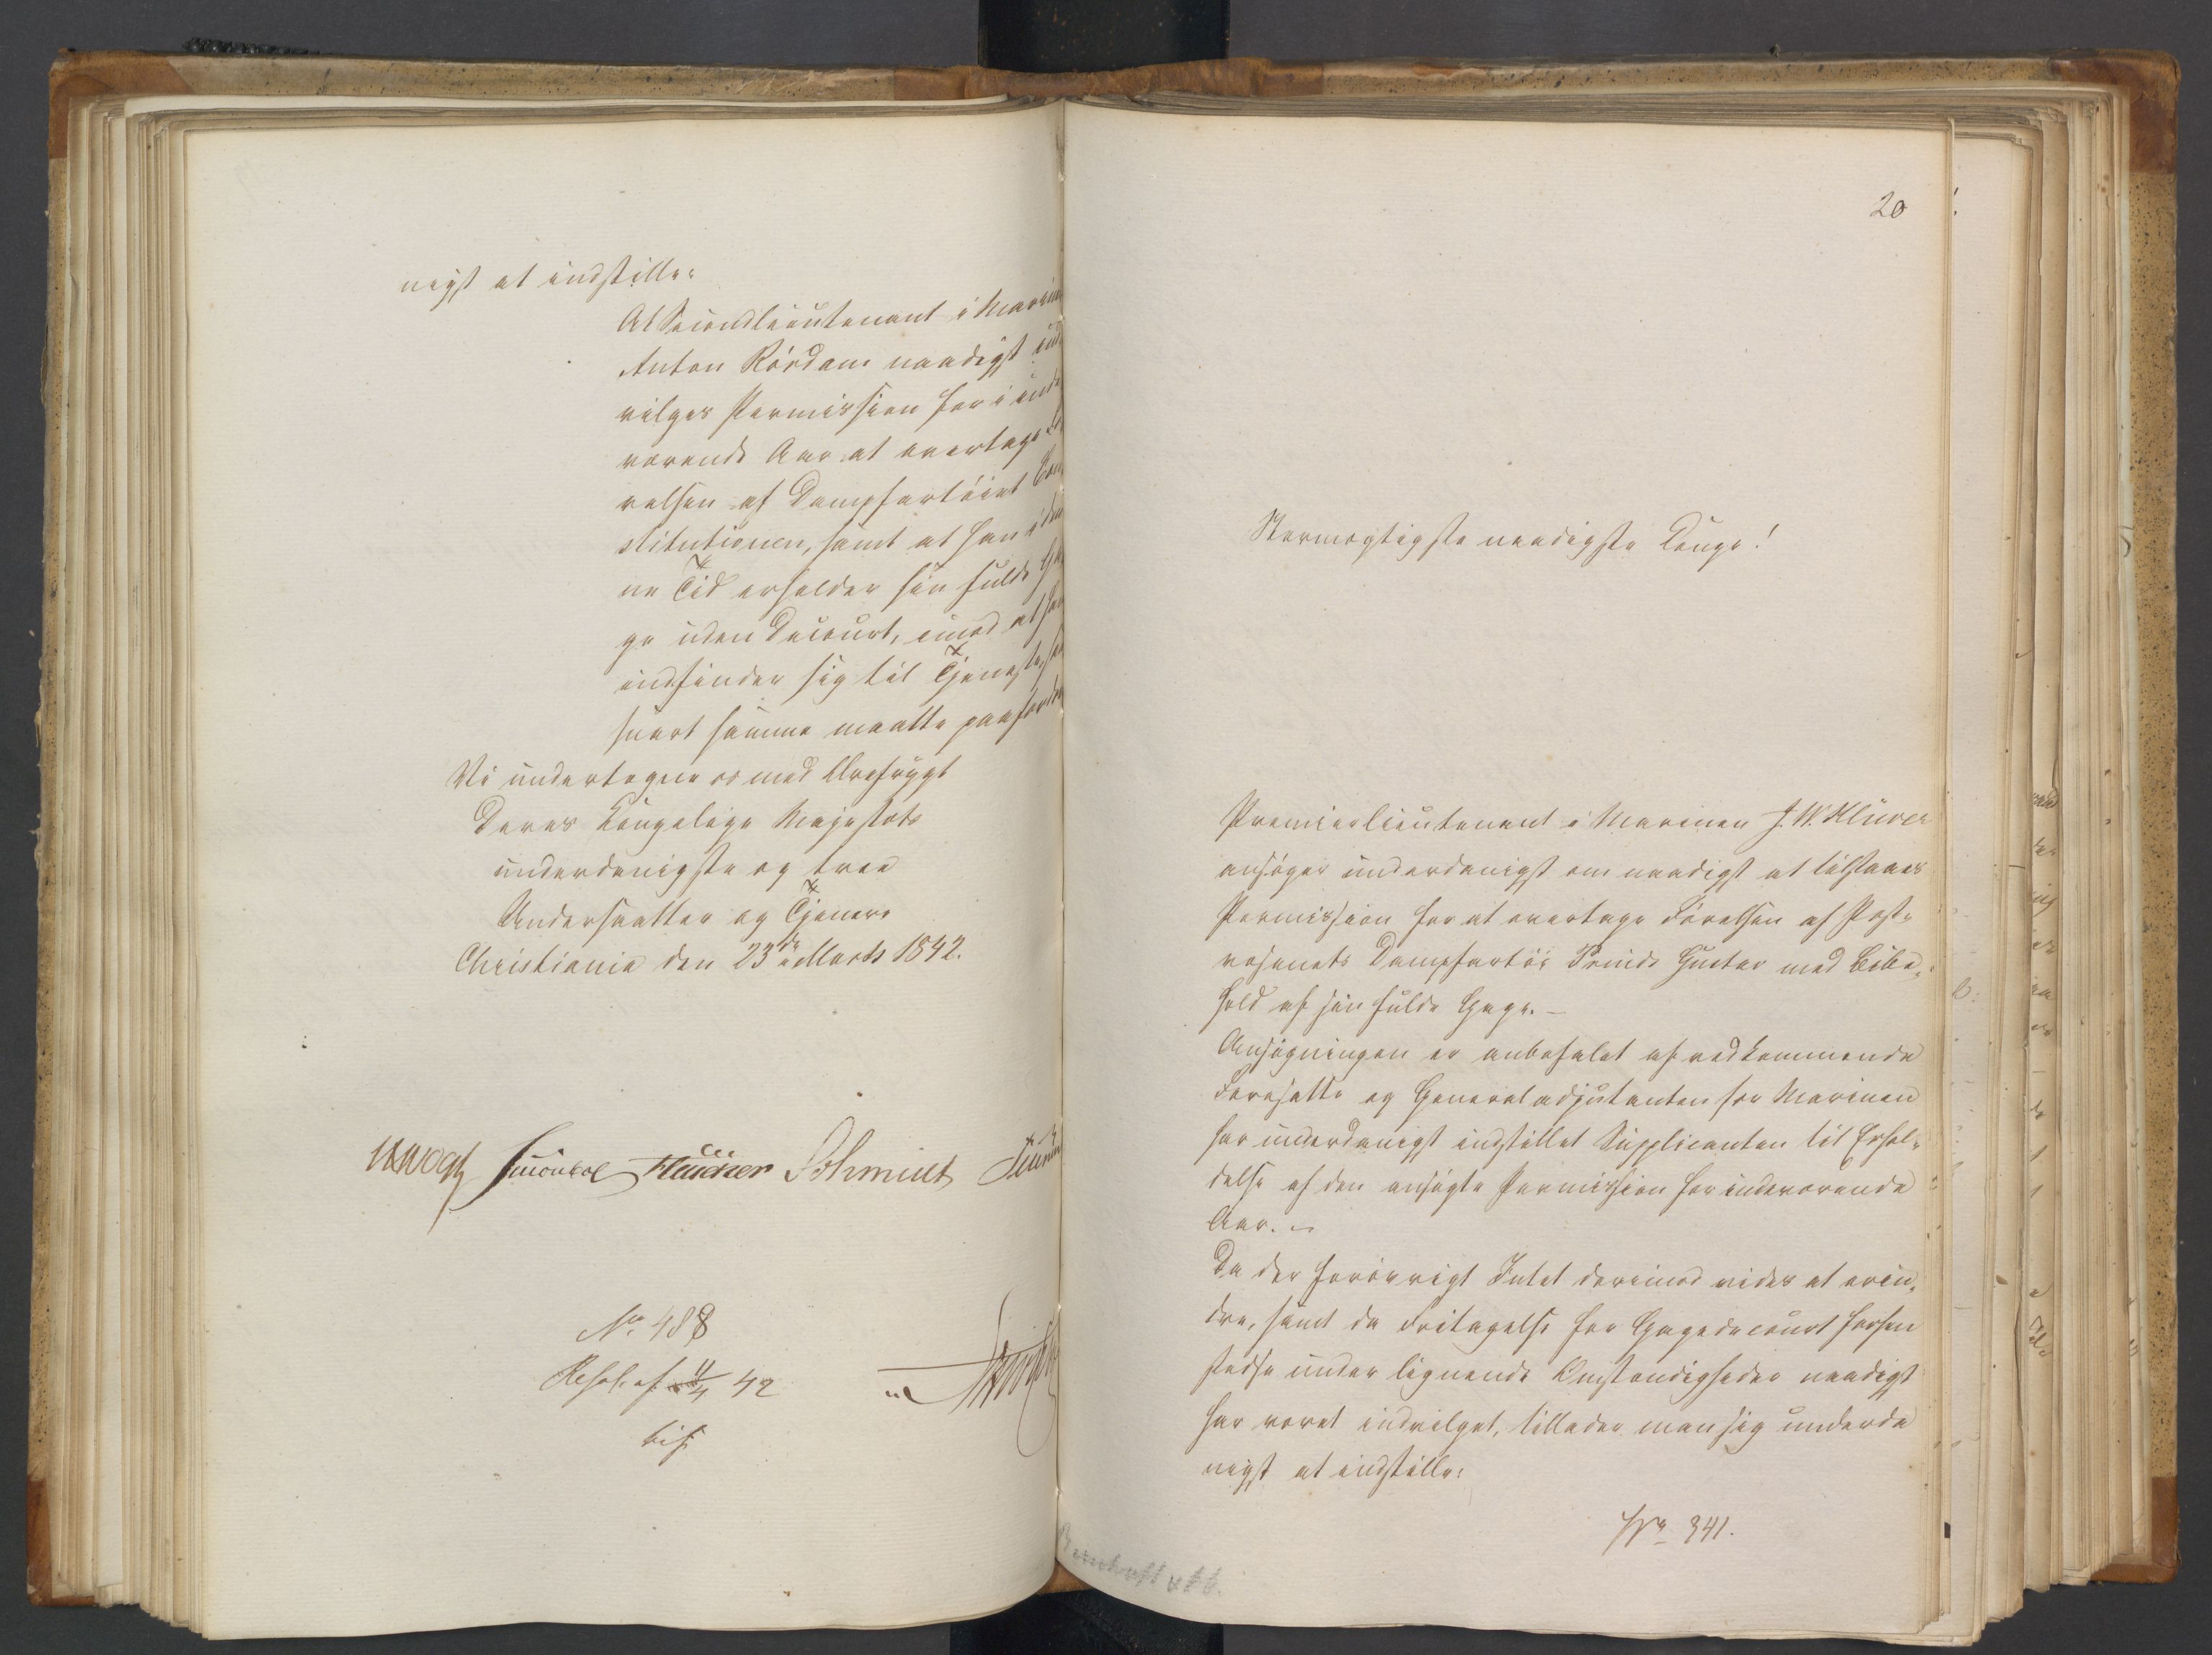 nigst at indstille:
At Secondlieutenant i Marin
Anton Rördam naadigst ind
vilges Permission for i inde
værende Aar at overtage
relsen af Dampfartöiet Con
stitutionen, samt at han i den
ne Tid erholder sin fulde Ga
ge uden Decourt, imod at han
indfinder sig til Tjeneste, saa
snart samme maatte paafordres
Vi undertegne os med Ærefrygt
Deres Kongelige Majestæts
underdanigste og troe
Undersaatter og Tjenere
Christiania den 23de Marts 1842.
Vogt Hückner Schmidt
No 488
Resol. af 11/4 42
bif.
20
Stormægtigste naadigste Konge!
Premierlieutenant i Marinen J. W. Klüver
ansöger underdanigst om naadigst at tilstaaes
Permission for at overtage Förelsen af Post-
væsenets Dampfartöi Prinds Gustav med Bibe-
hold af sin fulde Gage. –
Ansögningen er anbefalet af vedkommende
Foresatte og Generaladjutanten for Marinen
har underdanigst indstillet Supplicanten til Erhol-
delse af den ansögte Permission for indeværende
Aar. –
Da der forövrigt Intet derimod vides at erin-
dre, samt da Fritagelse for Gagedecourt forhen
stedse under lignende Omstændigheder naadigst
har været indvilget, tillader man sig underda
nigst at indstille:
No 341.